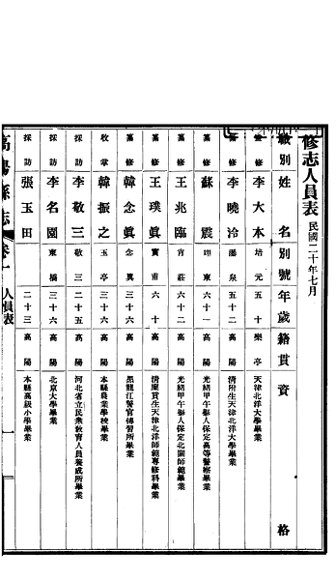 修志人員表 民國二十年七月
職別 姓名 別號 年歲 籍貫 資格
修 李大本 培元 五十 樂亭 天津北洋大學畢業
修 李曉泠 瀑泉 五十二 高陽 清附生天津北洋大學畢業
纂修 蘇震 東 六十一 高陽 光緒甲午舉人保定高等警察畢業
纂修 王兆臨 莊 六十二 高陽 光緒甲午舉人保定北關師範畢業
纂修 王璞真 甫 六十 高陽 清廩貢生天津北洋師範專修科畢業
纂修 韓念真 念真 三十六 高陽 黑龍江警官傳習所畢業
收掌 韓振之 玉亭 三十六 高陽 本縣農業學校畢業
採訪 李敬三 敬三 二十五 高陽 河北省立民衆教育人員養成所畢業
採訪 李名園 東橋 三十六 高陽 北京大學畢業
採訪 張玉田 二十三 高陽 本縣高級小學畢業
高陽縣志 卷一 人員表 一